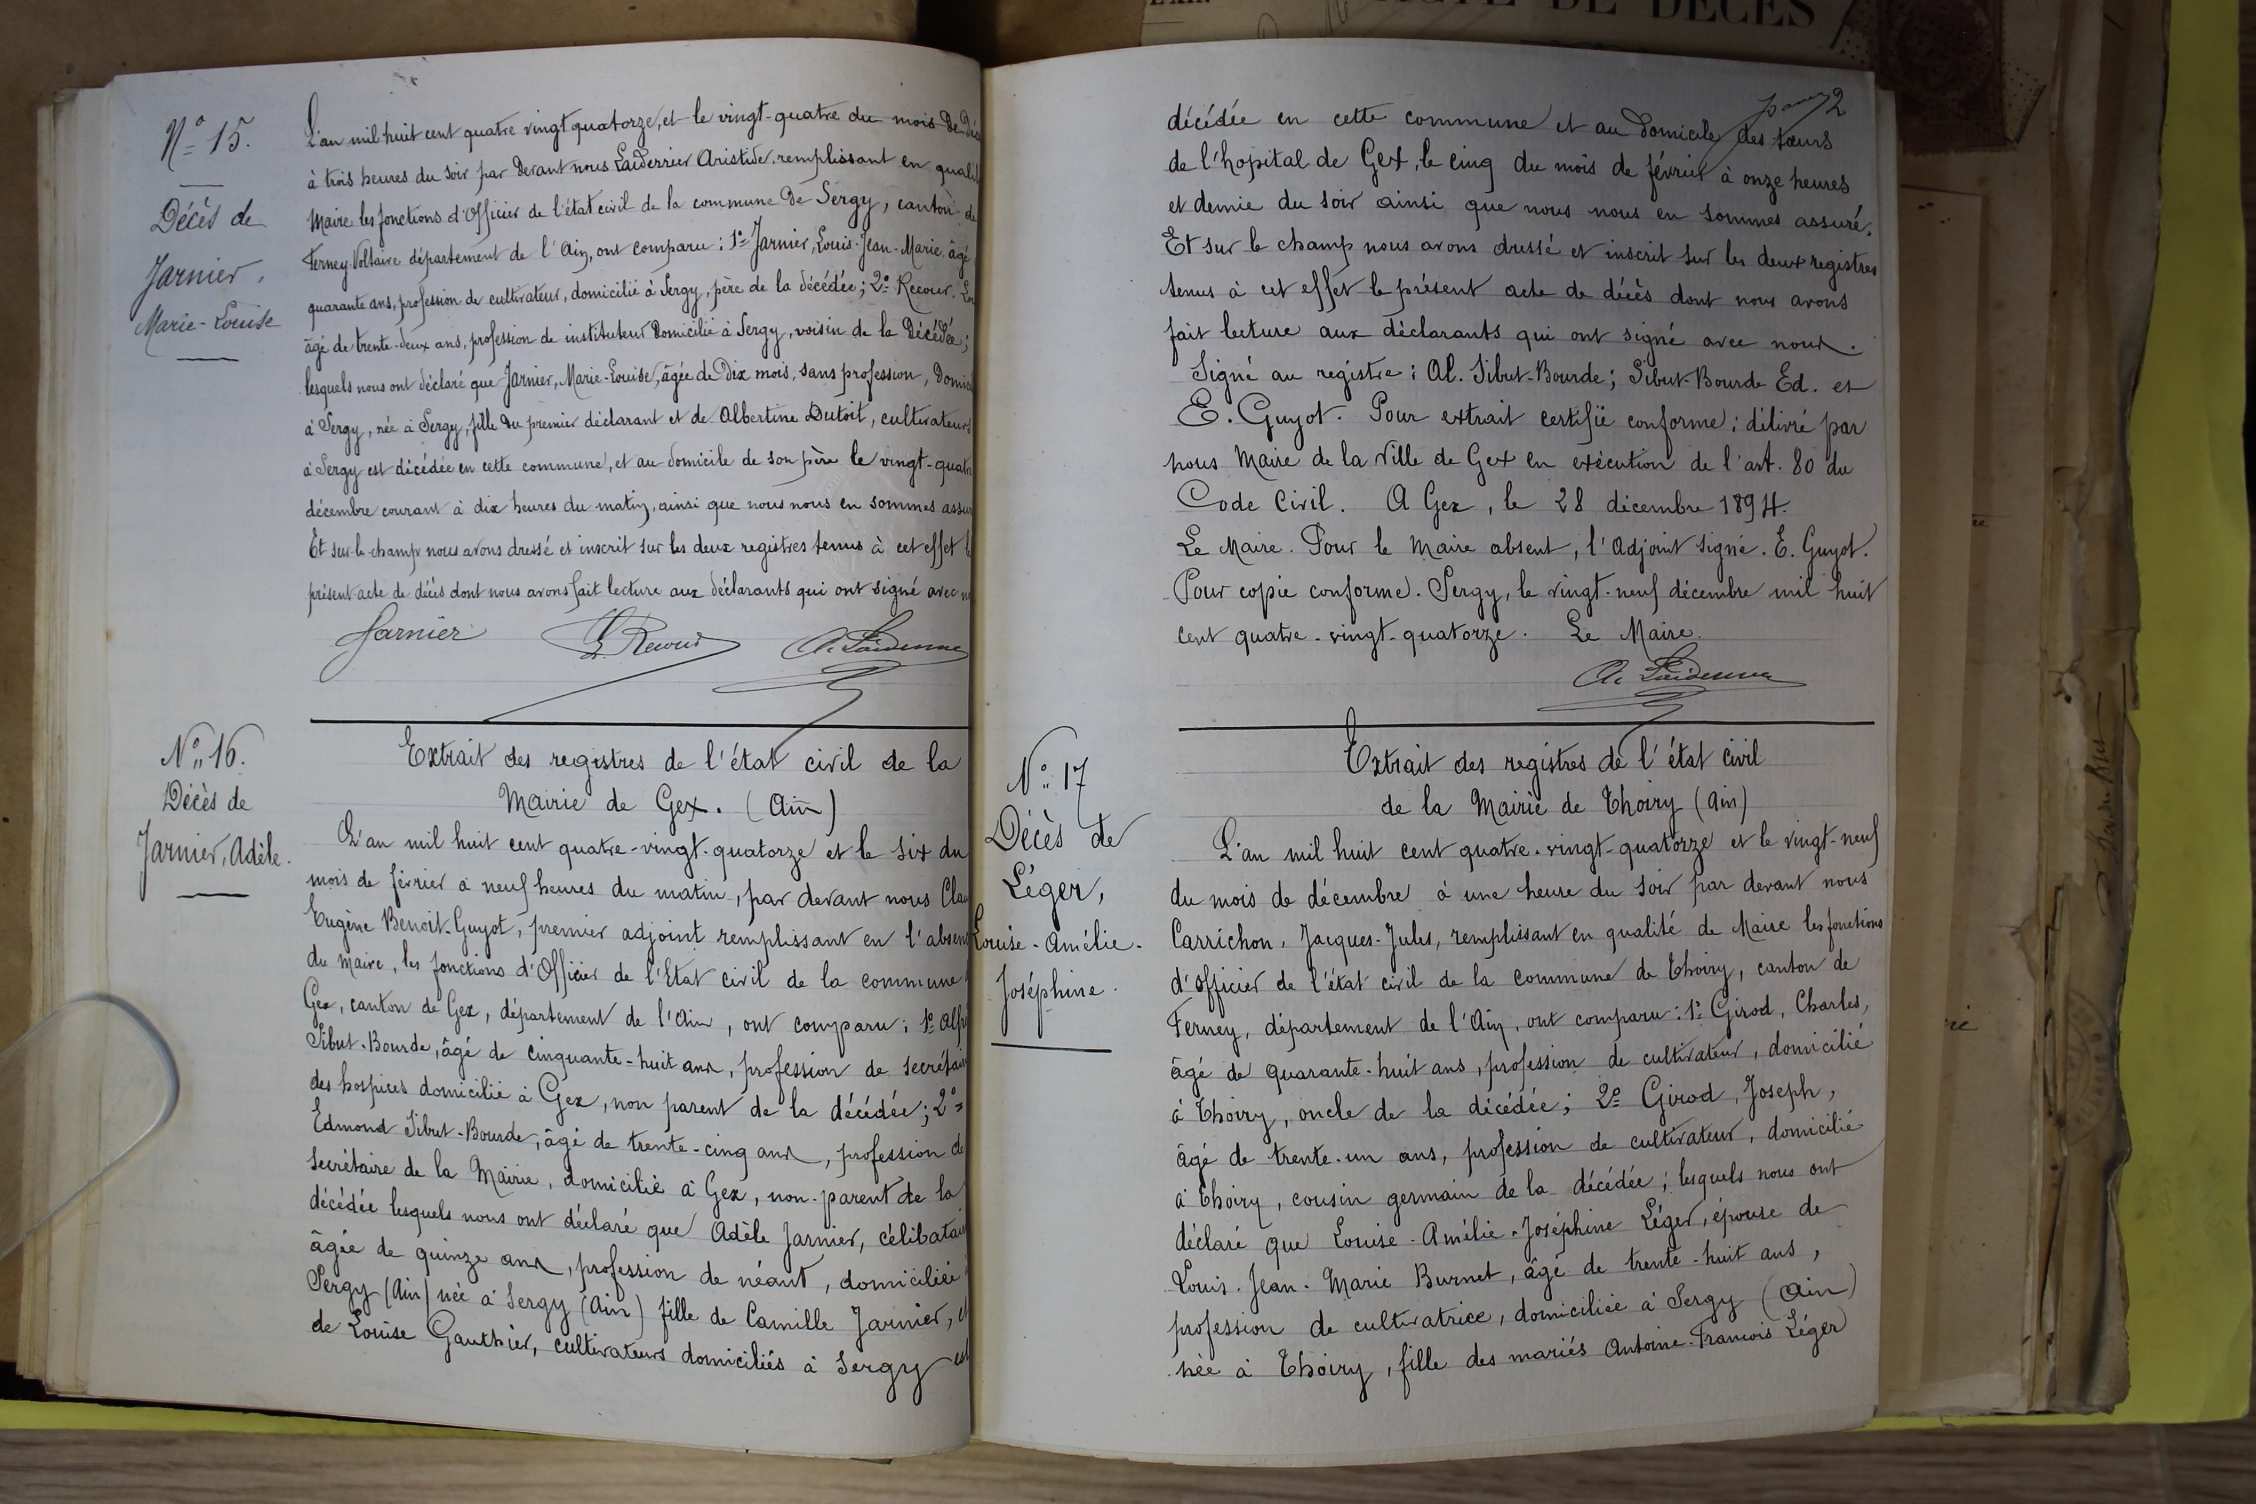 N° 15.
Décès de
Jarnier,
Marie-Louise
L'an mil huit cent quatre vingt quatorze, et le vingt-quatre du mois de
à trois heures du soir par devant nous Laiderrier Aristide, remplissant en
Maire les fonctions d'Officier de l'état civil de la commune de Sergy, canton de
Ferney Voltaire département de l'Ain, ont comparu : 1° Jarnier, Louis-Jean-Marie, âgé
quarante ans, profession de cultivateur, domicilié à Sergy, père de la décédée ; 2° Recour,
âgé de trente-deux ans, profession de instituteur domicilié à Sergy, voisin de la décédée ;
lesquels nous ont déclaré que Jarnier, Marie-Louise, âgée de dix mois, sans profession,
à Sergy, née à Sergy, fille du premier déclarant et de Albertine Dutoit, cultivateurs
à Sergy est décédée en cette commune, et au domicile de son père le vingt-quatre
décembre courant à dix heures du matin, ainsi que nous nous en sommes
Et sur-le-champ nous avons dressé et inscrit sur les deux registres tenus à cet effet
présent acte de décès dont nous avons fait lecture aux déclarants qui ont signé avec
Jarnier L. Recour
N° 16.
Décès de
Jarnier, Adèle.
Extrait des registres de l'état civil de la
Mairie de Gex. (Ain)
L'an mil huit cent quatre-vingt-quatorze et le six du
mois de février à neuf heures du matin, par devant nous
Eugène Benoit-Guyot, premier adjoint remplissant en l'
du maire, les fonctions d'Officier de l'Etat civil de la commune
Gex, canton de Gex, département de l'Ain, ont comparu : 1°
Sibut-Bourde, âgé de cinquante-huit ans, profession de
des hospices domicilié à Gex, non parent de la décédée ; 2°
Edmond Sibut-Bourde, âgé de trente-cinq ans, profession de
secrétaire de la Mairie, domicilié à Gex, non-parent de la
décédée lesquels nous ont déclaré que Adèle Jarnier,
âgée de quinze ans, profession de néant, domiciliée
Sergy (Ain) née à Sergy (Ain) fille de Camille Jarnier,
de Louise Gauthier, cultivateurs domiciliés à Sergy
décédée en cette commune et au domicile des sœurs
de l'hopital de Gex, le cinq du mois de février à onze heures
et demie du soir ainsi que nous nous en sommes assuré.
Et sur le champ nous avons dressé et inscrit sur les deux registres
tenus à cet effet le présent acte de décès dont nous avons
fait lecture aux déclarants qui ont signé avec nous.
Signé au registre : Al. Sibut-Bourde ; Sibut-Bourde Ed. et
E. Guyot. Pour extrait certifié conforme ; délivré par
nous Maire de la Ville de Gex en exécution de l'art. 80 du
Code Civil. A Gex, le 28 décembre 1894.
Le Maire. Pour le Maire absent, l'adjoint signé. E. Guyot.
Pour copie conforme. Sergy, le vingt-neuf décembre mil huit
cent quatre-vingt-quatorze. Le Maire.
N° 17
Décès de
Léger,
Louise-Amélie-
Joséphine.
Extrait des registres de l'état civil
de la Mairie de Thoiry (Ain)
L'an mil huit cent quatre-vingt-quatorze et le vingt-neuf
du mois de décembre à une heure du soir par devant nous
Carrichon, Jacques-Jules, remplissant en qualité de Maire les fonctions
d'officier de l'état civil de la commune de Thoiry, canton de
Ferney, département de l'Ain, ont comparu : 1° Girod, Charles,
âgé de quarante-huit ans, profession de cultivateur, domicilié
à Thoiry, oncle de la décédée ; 2° Girod, Joseph,
âgé de trente-un ans, profession de cultivateur, domicilié
à Thoiry, cousin germain de la décédée ; lesquels nous ont
déclaré que Louise-Amélie-Joséphine Léger, épouse de
Louis-Jean-Marie Burnet, âgé de trente-huit ans,
profession de cultivatrice, domiciliée à Sergy (Ain)
née à Thoiry, fille des mariés Antoine-François Léger